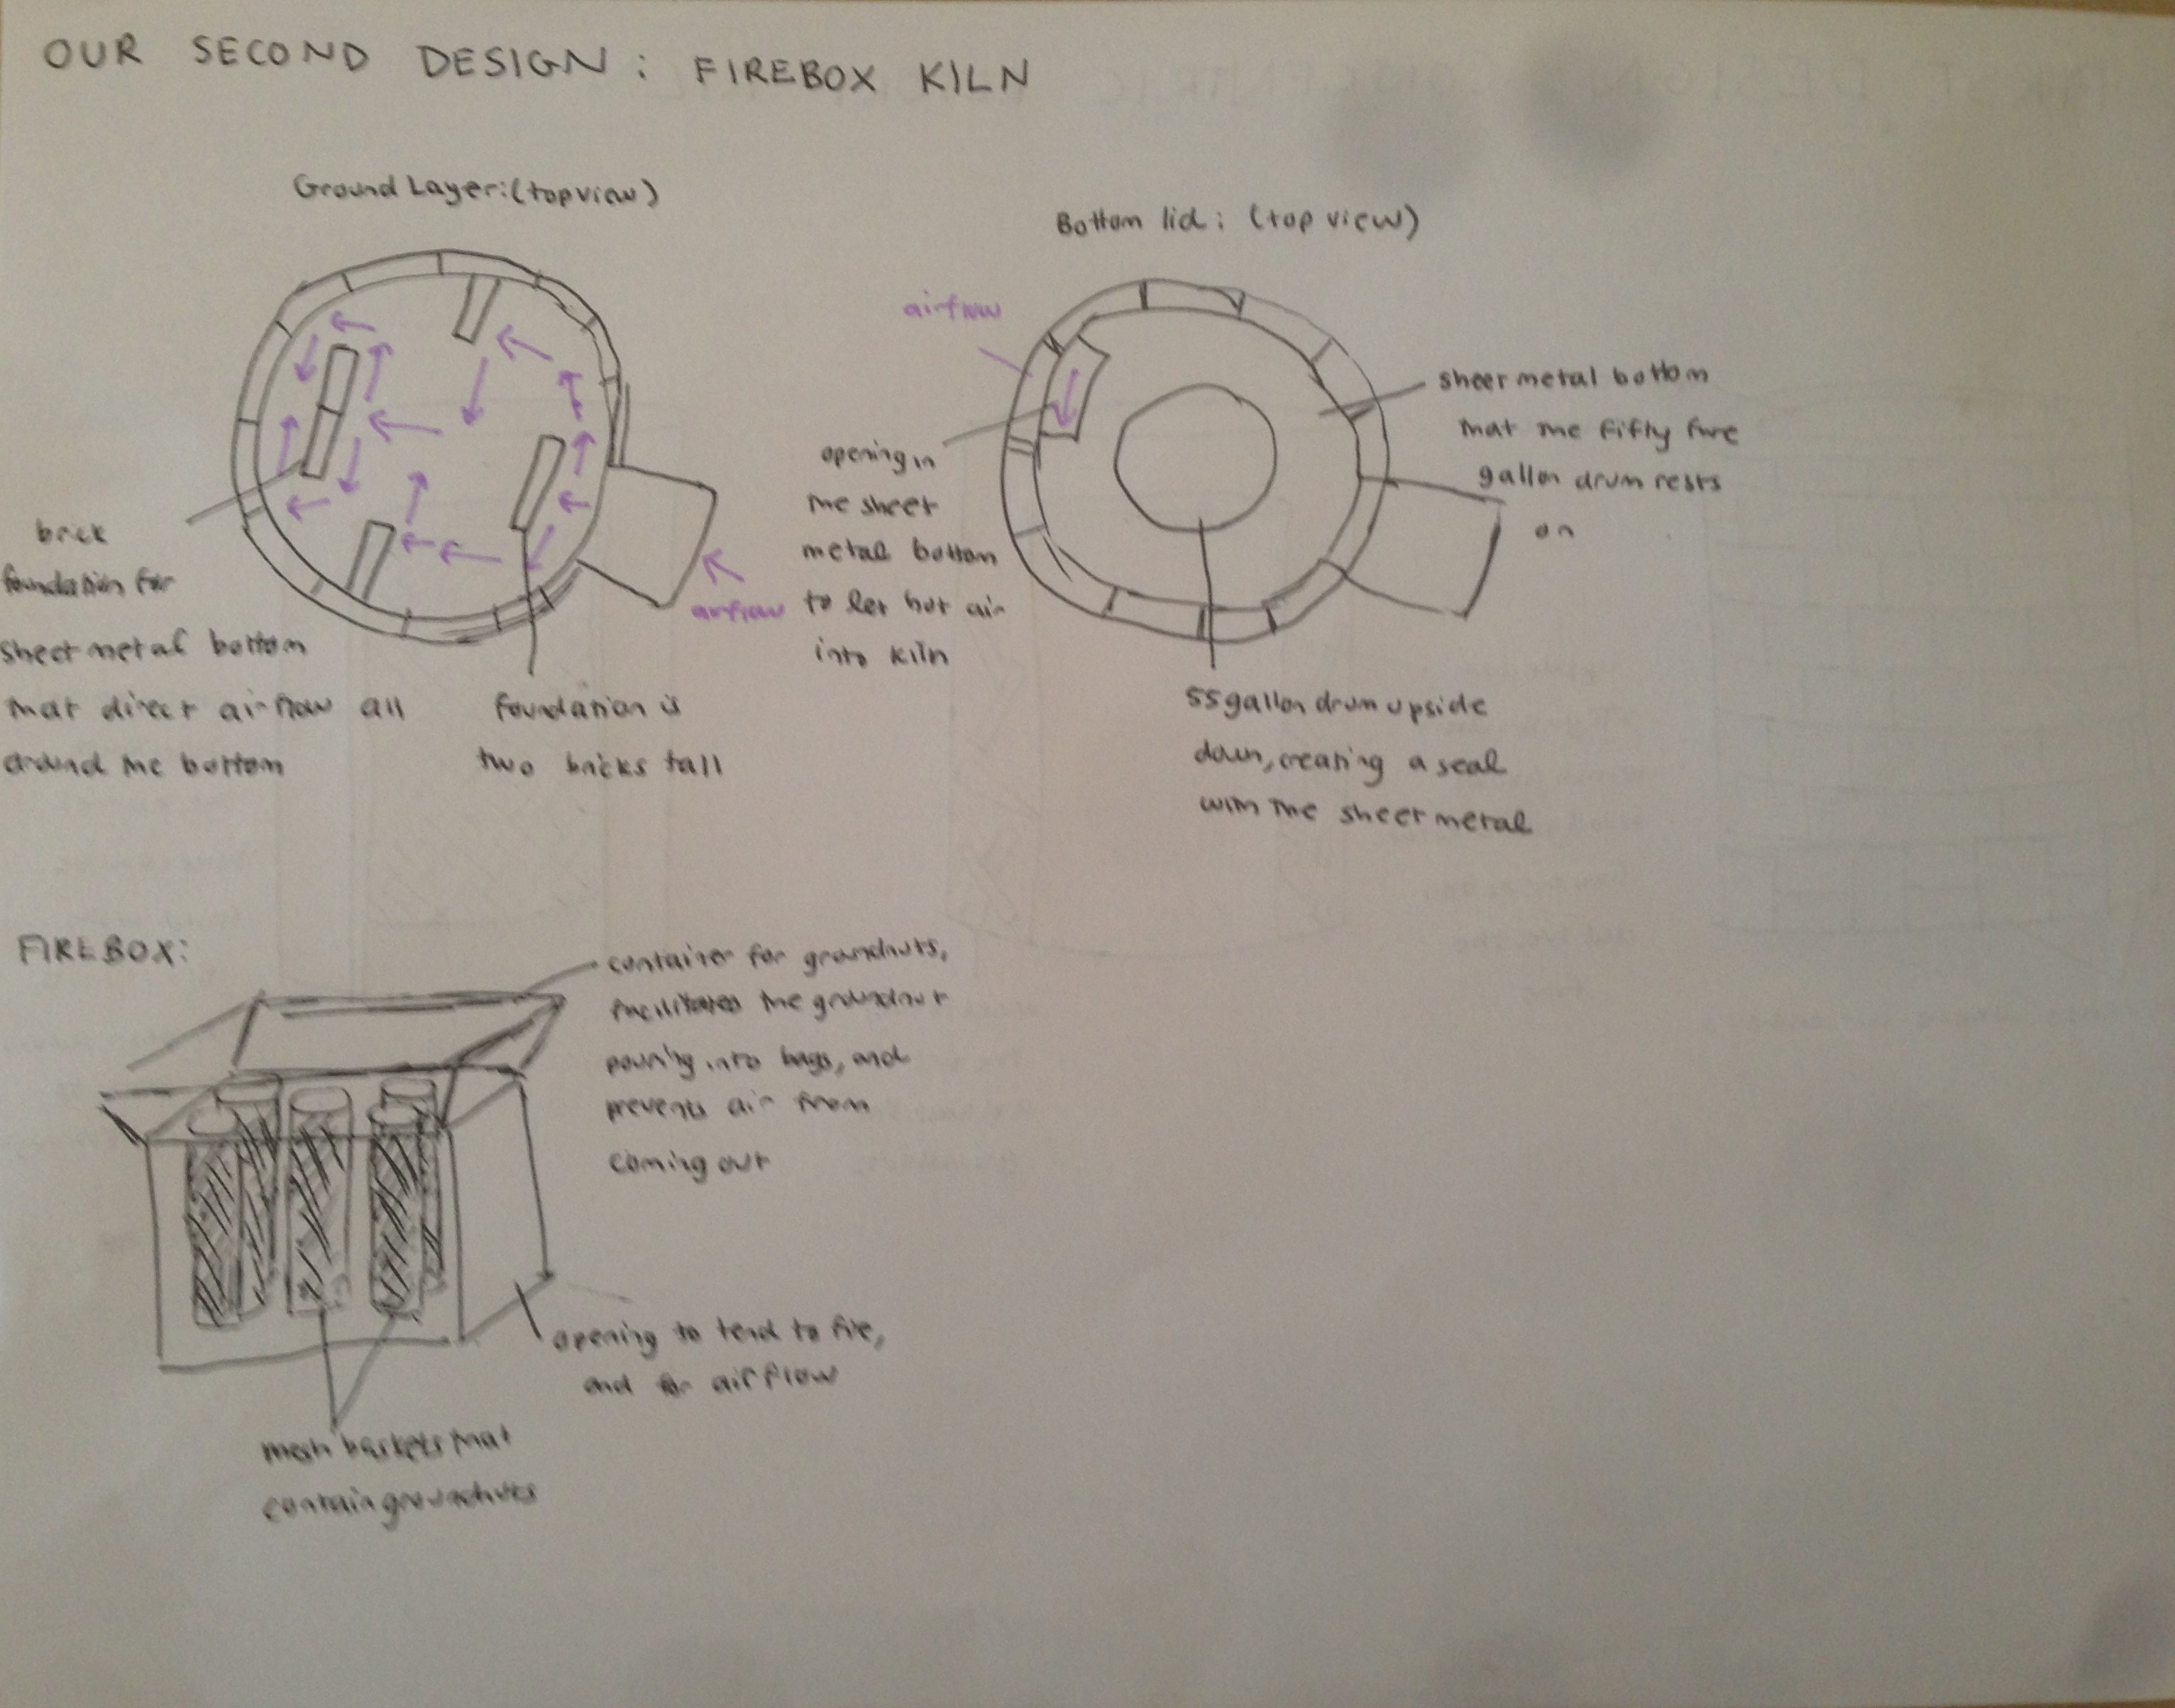 OUR SECOND DESIGN: FIREBOX KILN
Ground Layer: (top view)
brick
foundation for
sheet metal bottom
that direct airflow all
around the bottom
foundation is
two bricks tall
airflow
Bottom lid: (top view)
airflow
opening in
the sheet
metal bottom
to let hot air
into kiln
sheet metal bottom
that the fifty five
gallon drum rests
on
55 gallon drum upside
down, creating a seal
with the sheet metal
FIREBOX:
container for groundnuts,
facilitates the groundnut
pouring into bags, and
prevents air from
coming out
opening to tend to fire,
and for airflow
mesh baskets that
contain groundnuts